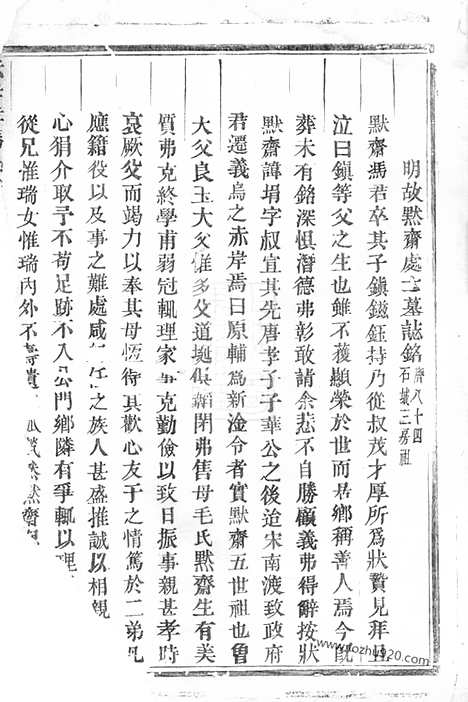 明故默齋處士墓誌銘 席八十四 石墩三房祖
默齋馮君卒其子鎮鎡鈺持乃從叔茂才厚所爲狀贄見拜且
泣曰鎮等父之生也雖不獲顯榮於世而居鄉稱善人焉今旣
葬未有銘深惧潛德弗彰敢請余悲不自勝顧義弗得辭按狀
默齋諱埍字叔宜其先唐孝子子華公之後迨宋南渡致政府
君遷義烏之赤岸焉曰原輔爲新淦令者實默齋五世祖也曾
大父良玉大父惟多父道堄俱韜閉弗售母毛氏默齋生有美
質弗克終學甫弱冠輒理家事克勤儉以致日振事親甚孝時
哀厥父而竭力以奉其母恆待其歡心友于之情篤於二弟凡
應籍役以及事之難處咸 之族人甚盛推誠以相親
心狷介取予不苟足跡不入公門鄉隣有爭輒以理
從兄惟瑞女惟瑞內外不 默齋
www.fozhu920.com